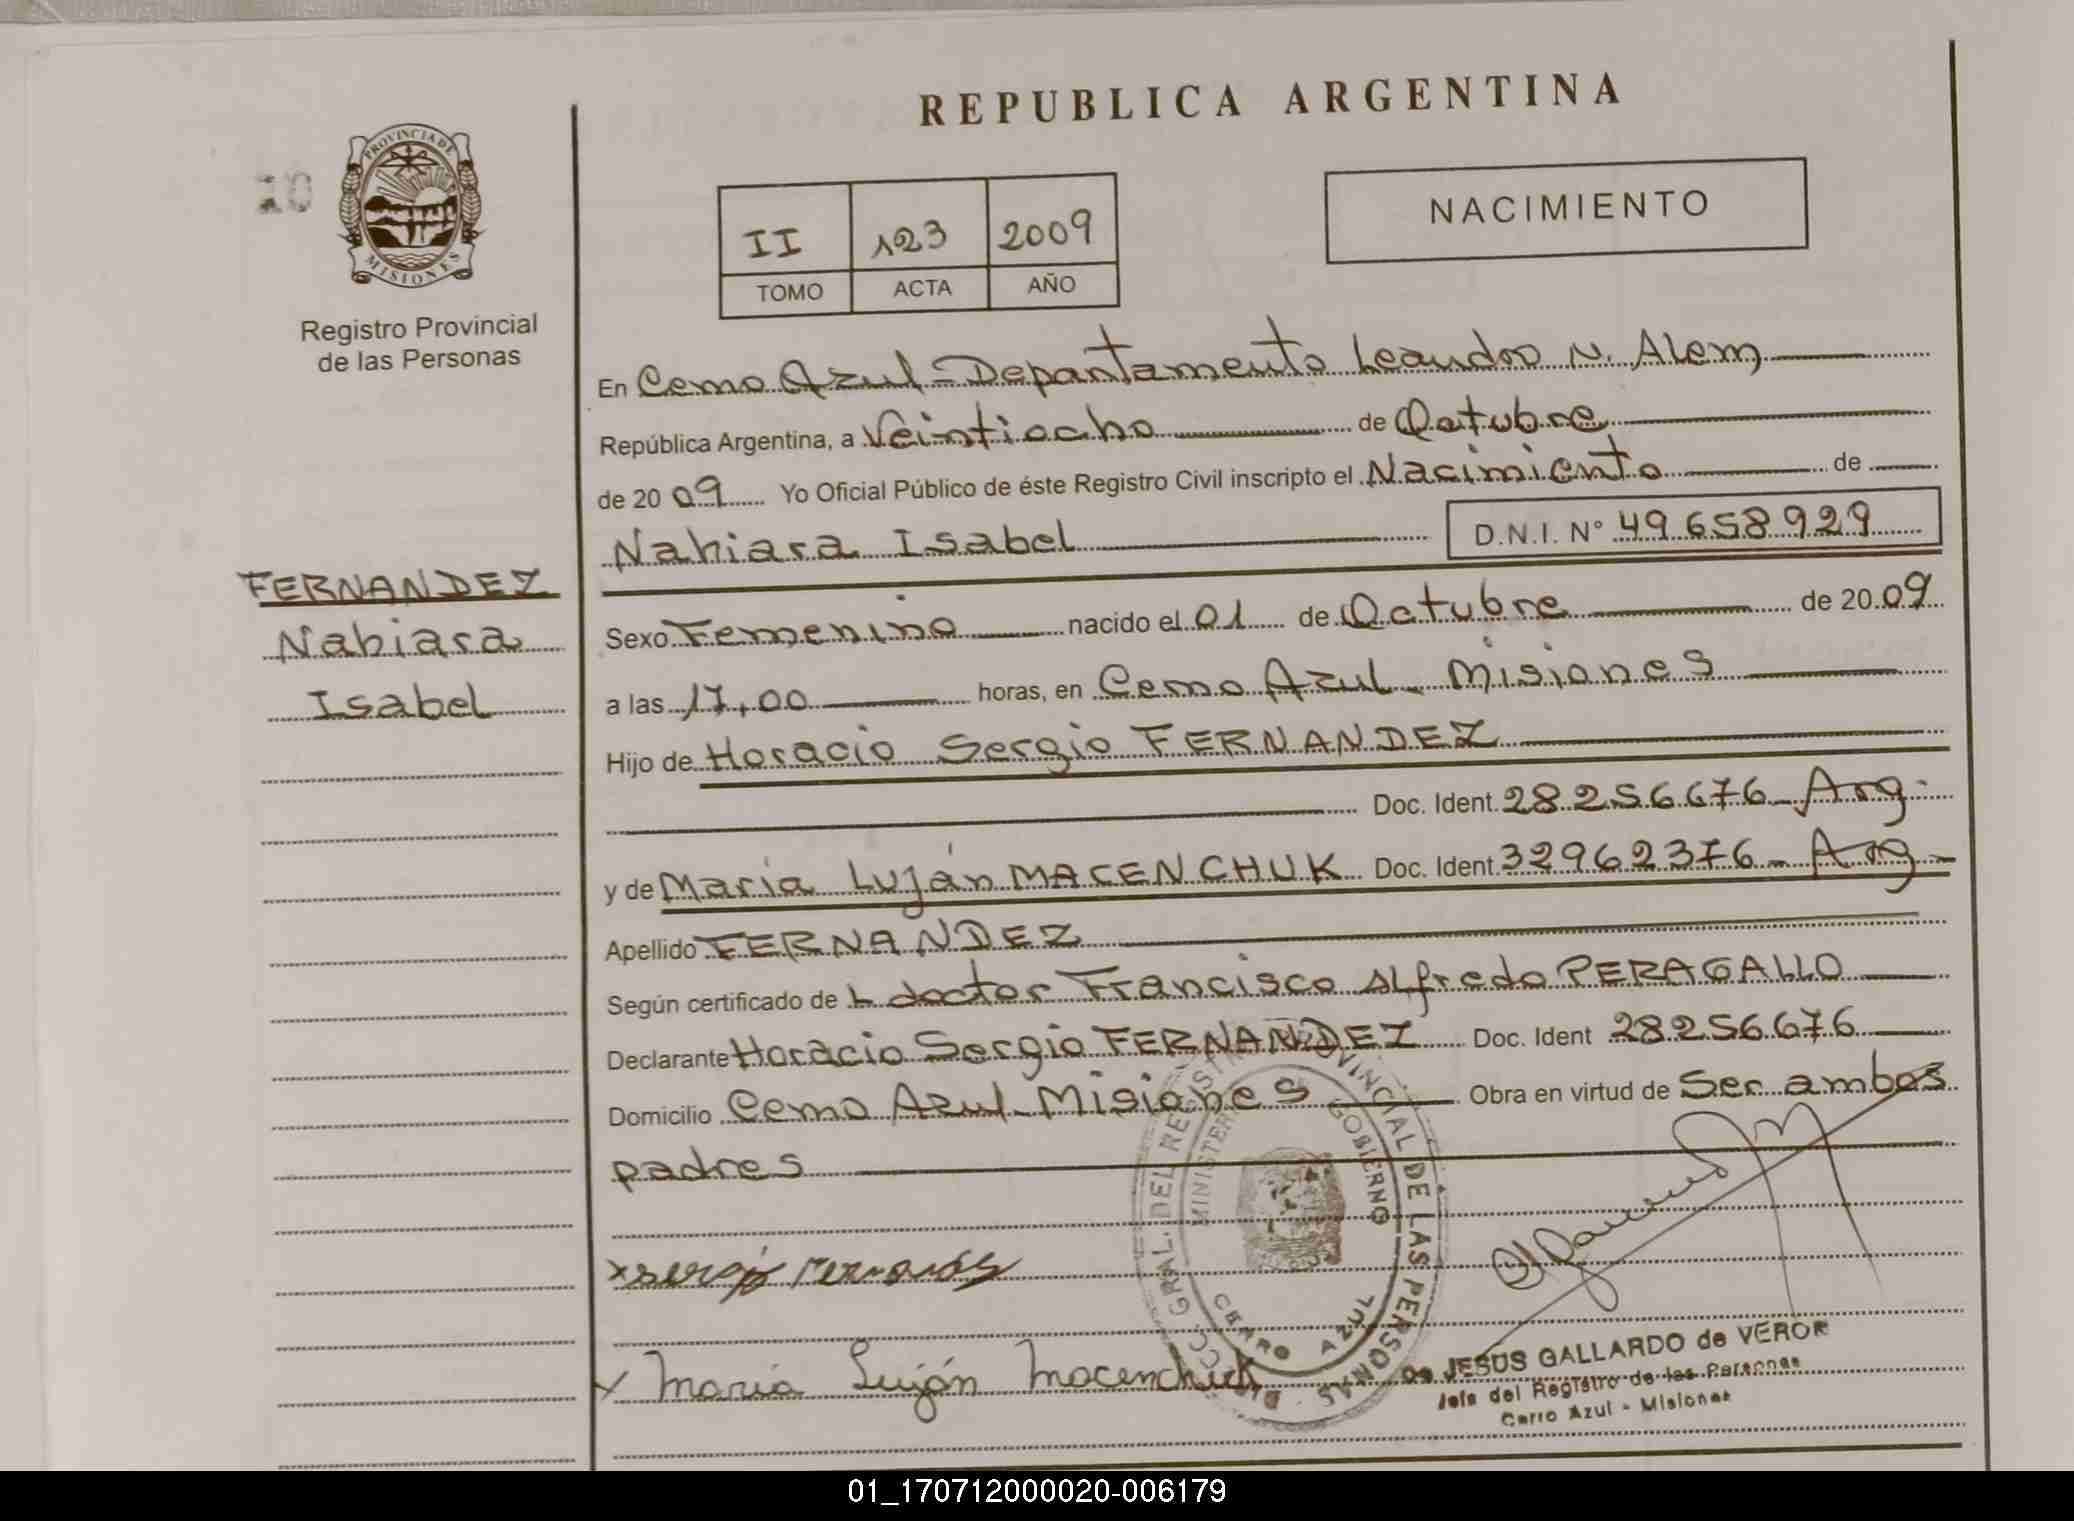 REPUBLICA ARGENTINA
10
PROVINCIA DE
MISIONES
Registro Provincial
de las Personas
II 123 2009
TOMO ACTA AÑO
NACIMIENTO
En Cerro Azul - Departamento Leandro N. Alem
República Argentina, a Veintiocho de Octubre
de 20 09 Yo Oficial Público de éste Registro Civil inscripto el Nacimiento de
Nahiara Isabel D.N.I. Nº 49.658.929
FERNANDEZ
Nahiara
Isabel
Sexo Femenino nacido el 01 de Octubre de 20 09
a las 17,00 horas, en Cerro Azul - Misiones
Hijo de Horacio Sergio FERNANDEZ
Doc. Ident. 28256676 - Arg.
y de María Luján MACENCHUK Doc. Ident. 32962376 - Arg -
Apellido FERNANDEZ
Según certificado de L doctor Francisco Alfredo PERAGALLO
Declarante Horacio Sergio FERNANDEZ Doc. Ident 28256676
Domicilio Cerro Azul - Misiones Obra en virtud de Ser ambos
padres
x Sergio Fernandes
x María Luján Macenchuk
GRAL. DEL REGISTRO PROVINCIAL DE LAS PERSONAS
MINISTERIO GOBIERNO
CERRO AZUL
DE JESUS GALLARDO de VEROR
Jefe del Registro de las Personas
Cerro Azul - Misiones
01_170712000020-006179